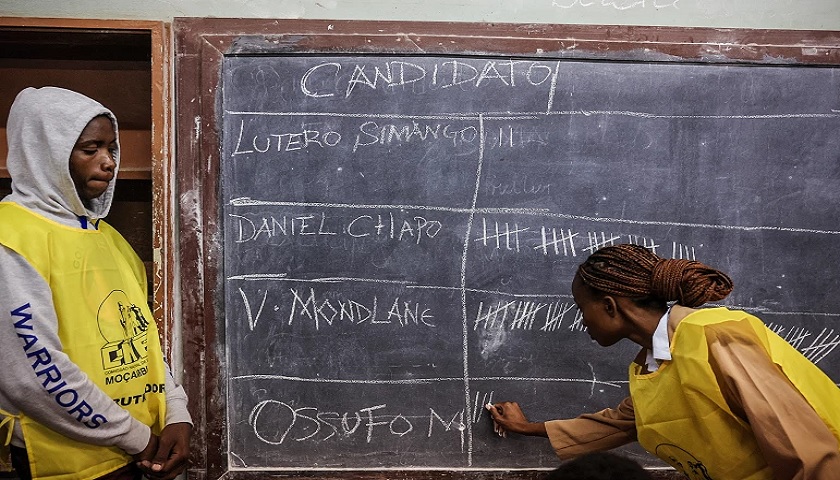 CANDIDATO
LUTERO SIMANGO
DANIEL CHAPO
V. MONDLANE
OSSUFO M
WARRIORS
MOÇAMBI